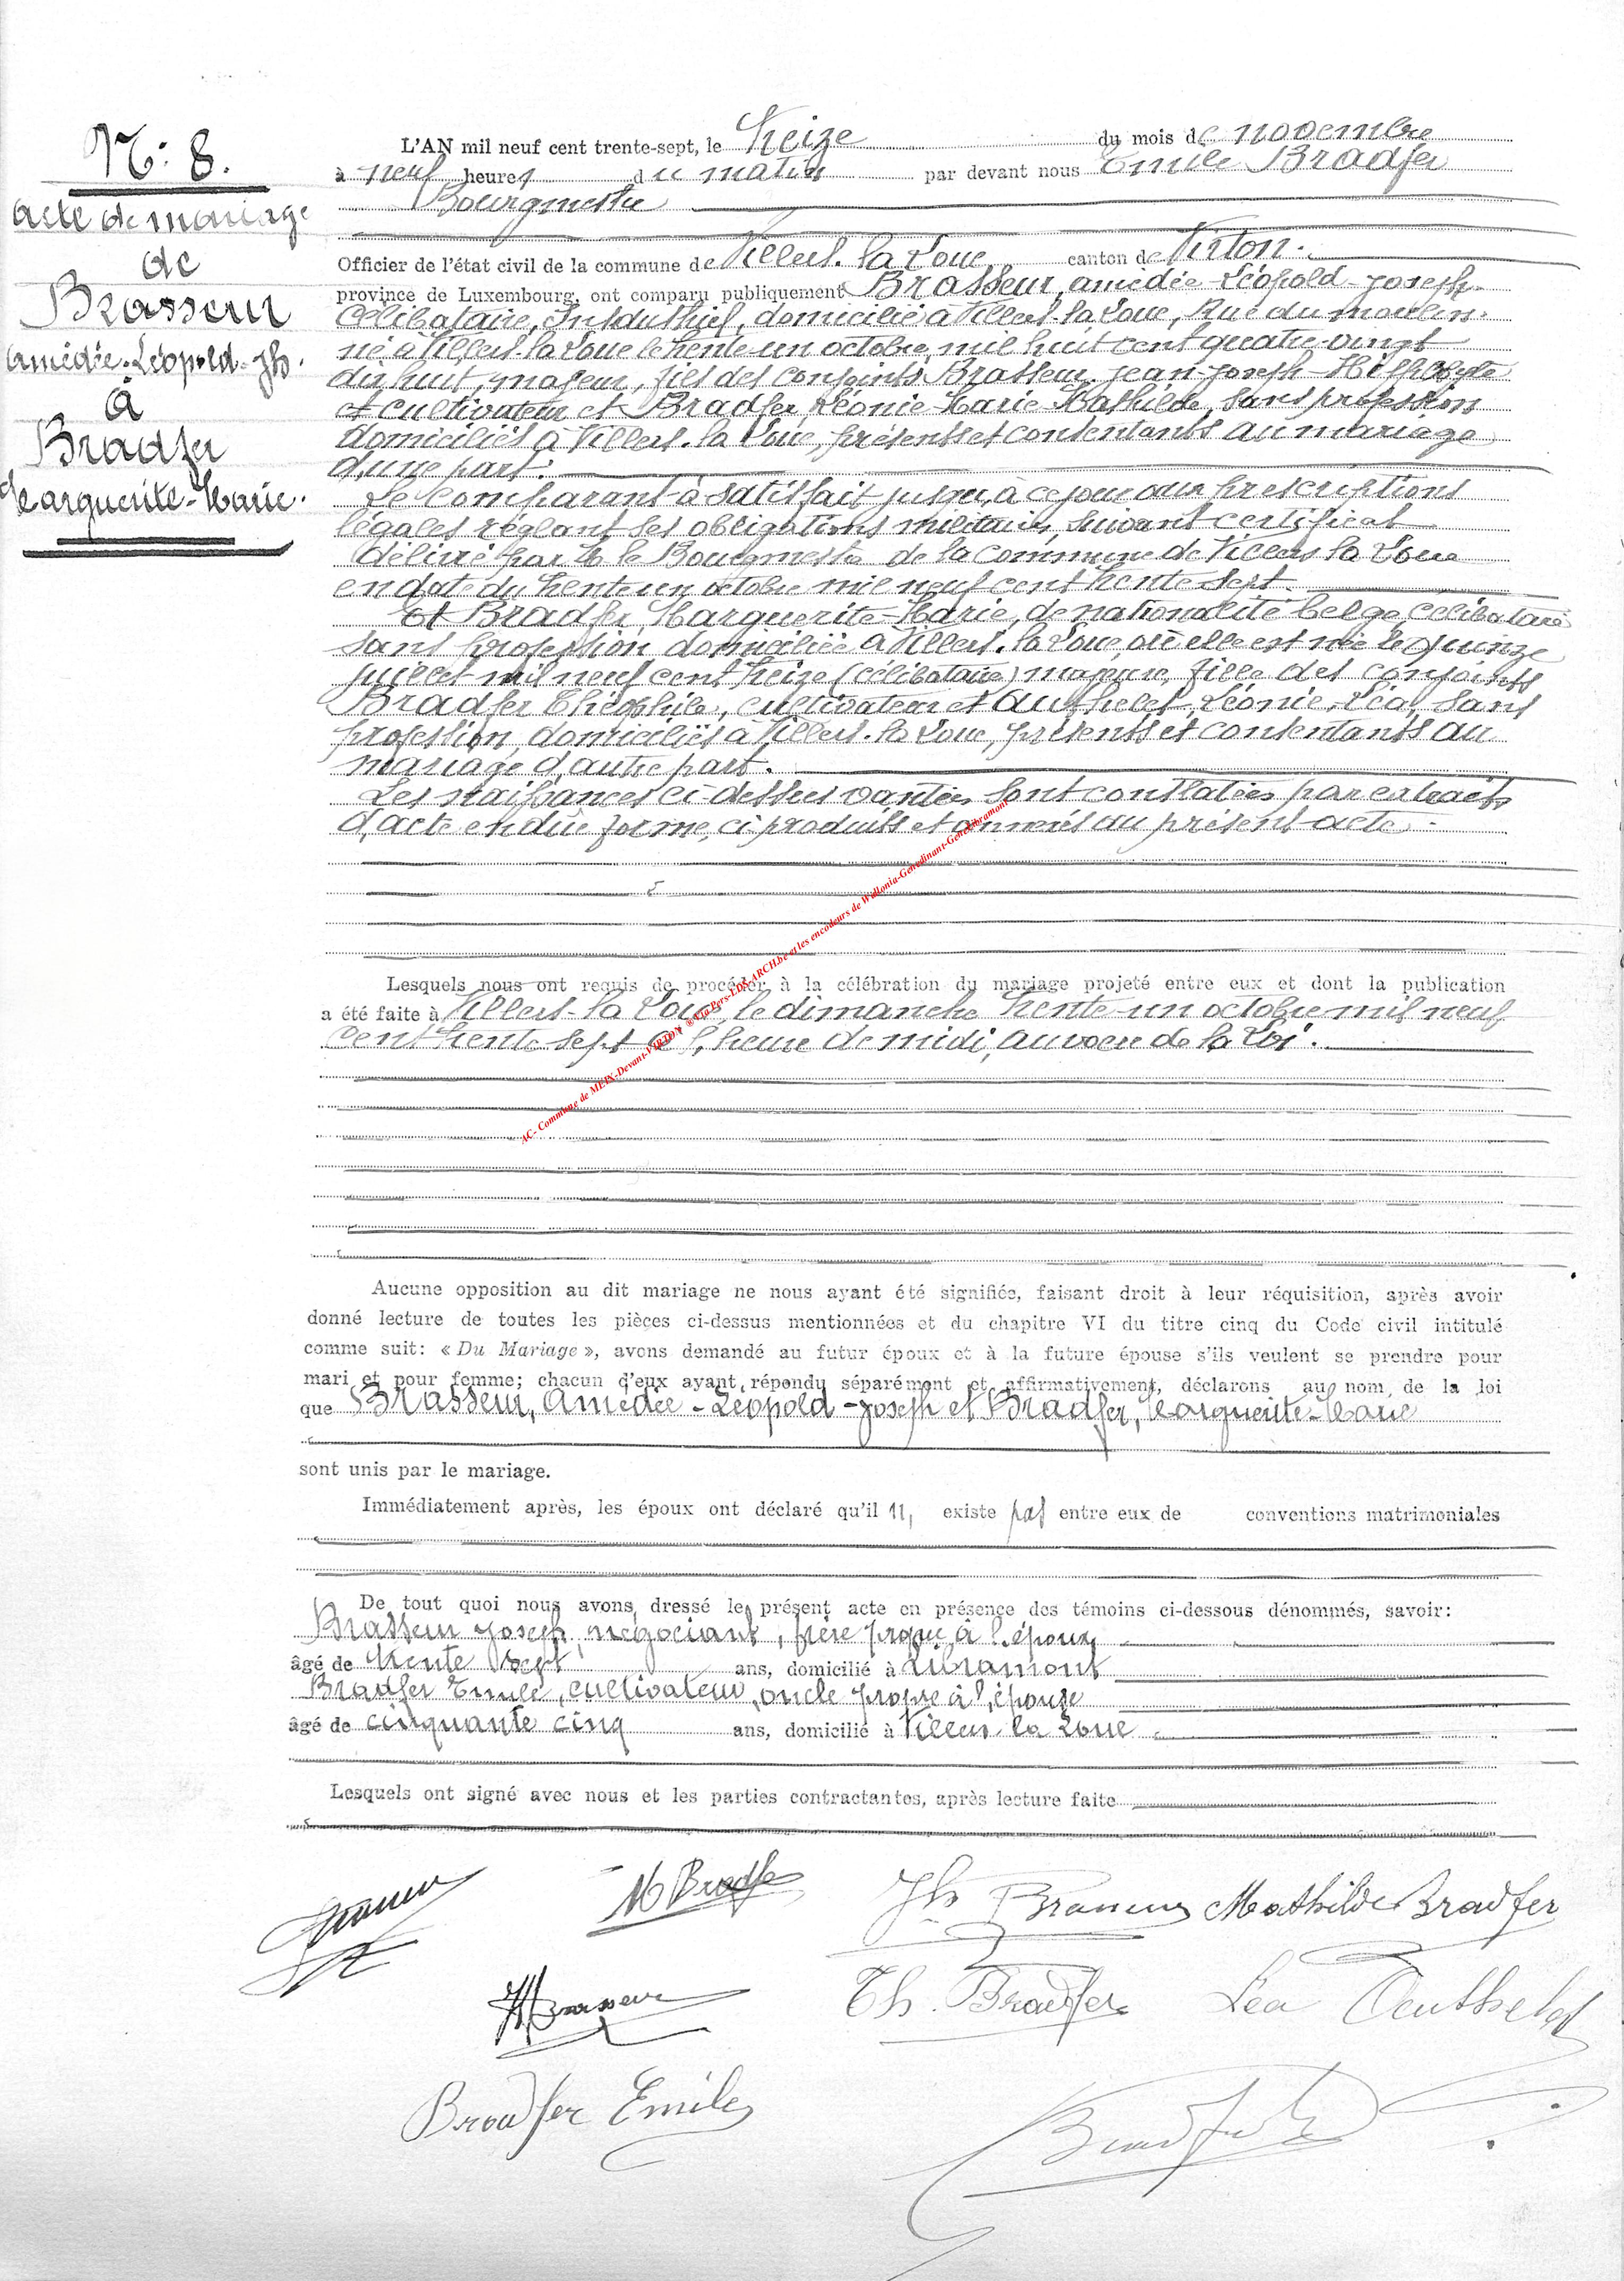 N: 8.
Acte de mariage
de
Brasseur
Amédée-Léopold-Jh.
à
Bradfer
Marguerite-Marie.
L'AN mil neuf cent trente-sept, le treize du mois de novembre
à neuf heures du matin par devant nous Emile Bradfer
Bourgmestre
Officier de l'état civil de la commune de Villers-la-Loue canton de Virton.
province de Luxembourg, ont comparu publiquement Brasseur, amédée-Léopold-Joseph
célibataire, Industriel, domicilié à Villers-la-Loue, Rue du moulin
né à Villers-la-Loue le trente-un octobre mil huit cent quatre-vingt
dix huit, majeur, fils des conjoints Brasseur, Jean-Joseph
cultivateur et Bradfer Léonie-Marie-Mathilde, sans profession
domiciliés à Villers-la-Loue, présents et consentants au mariage
d'une part.
Le comparant à satisfait jusqu'à ce jour aux prescriptions
légales réglant ses obligations militaires, suivant certificat
délivré par M le Bourgmestre de la commune de Villers la Loue
en date du trente un octobre mil neuf cent trente sept.
Et Bradfer, Marguerite-Marie, de nationalité belge, célibataire
sans profession domiciliée à Villers-la-Loue, où elle est née le quinze
juillet mil neuf cent treize (célibataire) majeure, fille des conjoints
Bradfer Théophile, cultivateur et Authelet, Léonie, Léa, sans
profession, domiciliés à Villers-la-Loue, présents et consentants au
mariage d'autre part.
Les naissances ci-dessus vantées sont constatées par extraits
d'acte en dûe forme, ci produits et annexés au présent acte.
Lesquels nous ont requis de procéder à la célébration du mariage projeté entre eux et dont la publication
a été faite à Villers-la-Loue, le dimanche trente-un octobre mil neuf
cent trente sept à l'heure de midi, au voeu de la Loi.
AC- Commune de MEIX-Devant-VIRTON ®Via Pers-LDS-ARCH.be et les encodeurs de Wallonia-Genedinant-Genelibramont
Aucune opposition au dit mariage ne nous ayant été signifiée, faisant droit à leur réquisition, après avoir
donné lecture de toutes les pièces ci-dessus mentionnées et du chapitre VI du titre cinq du Code civil intitulé
comme suit: « Du Mariage », avons demandé au futur époux et à la future épouse s'ils veulent se prendre pour
mari et pour femme; chacun d'eux ayant répondu séparément et affirmativement, déclarons au nom de la loi
que Brasseur, Amédée-Léopold-Joseph et Bradfer, Marguerite-Marie
sont unis par le mariage.
Immédiatement après, les époux ont déclaré qu'il n'existe pas entre eux de conventions matrimoniales
De tout quoi nous avons dressé le présent acte en présence des témoins ci-dessous dénommés, savoir:
Brasseur Joseph, négociant, frère propre à l'époux
âgé de trente sept ans, domicilié à Libramont
Bradfer Emile, cultivateur, oncle propre à l'épouse
âgé de cinquante cinq ans, domicilié à Villers-la-Loue
Lesquels ont signé avec nous et les parties contractantes, après lecture faite
M Bradfer
Jh Brasseur Mathilde Bradfer
Brasseur
Th. Bradfer Léa Authelet
Bradfer Emile
Bradfer